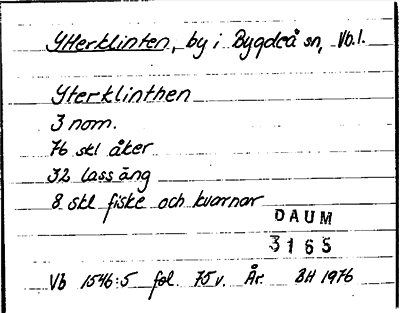 Ytterklinten, by i Bygdeå sn, Vb.l.
Yterklinthen
3 nom.
76 skl åker
32 lass äng
8 skl fiske och kvarnar
DAUM
3165
Vb 1546:5 fol. 75v. År. BH 1976